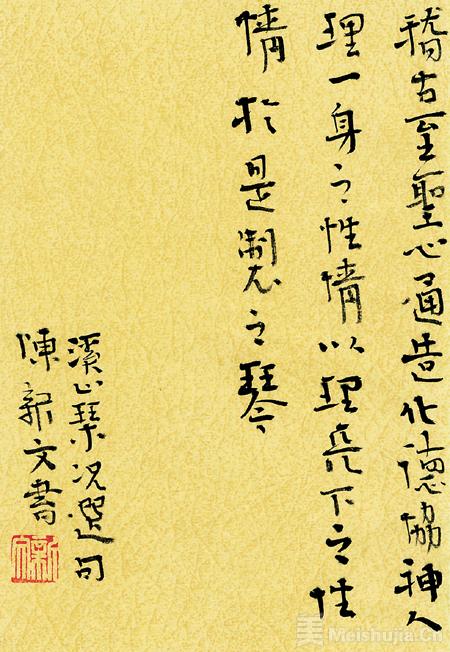 稽古至聖心通造化德協神人
理一身之性情以理天下之性
情於是製之琴
溪山琴况選句
陳新文書
美 Meishujia.Cn